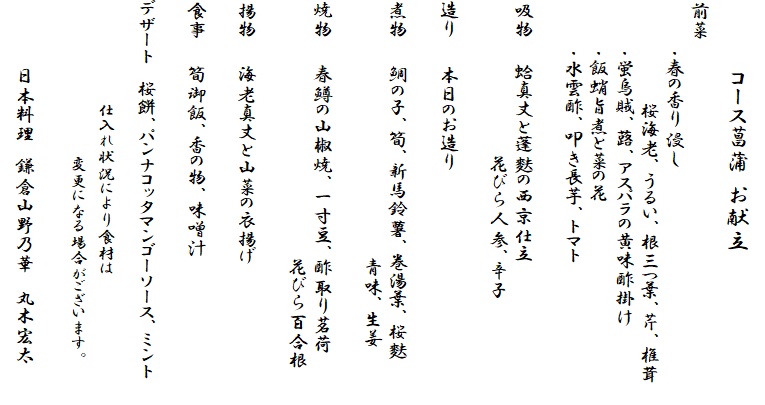 コース菖蒲　お献立
前菜
・春の香り浸し
桜海老、うるい、根三つ葉、芹、椎茸
・蛍烏賊、蕗、アスパラの黄味酢掛け
・飯蛸旨煮と菜の花
・水雲酢、叩き長芋、トマト
吸物　蛤真丈と蓬麩の西京仕立
花びら人参、辛子
造り　本日のお造り
煮物　鯛の子、筍、新馬鈴薯、巻湯葉、桜麩
青味、生姜
焼物　春鱒の山椒焼、一寸豆、酢取り茗荷
花びら百合根
揚物　海老真丈と山菜の衣揚げ
食事　筍御飯、香の物、味噌汁
デザート　桜餅、パンナコッタマンゴーソース、ミント
仕入れ状況により食材は
変更になる場合がございます。
日本料理　鎌倉山野乃華　丸木宏太